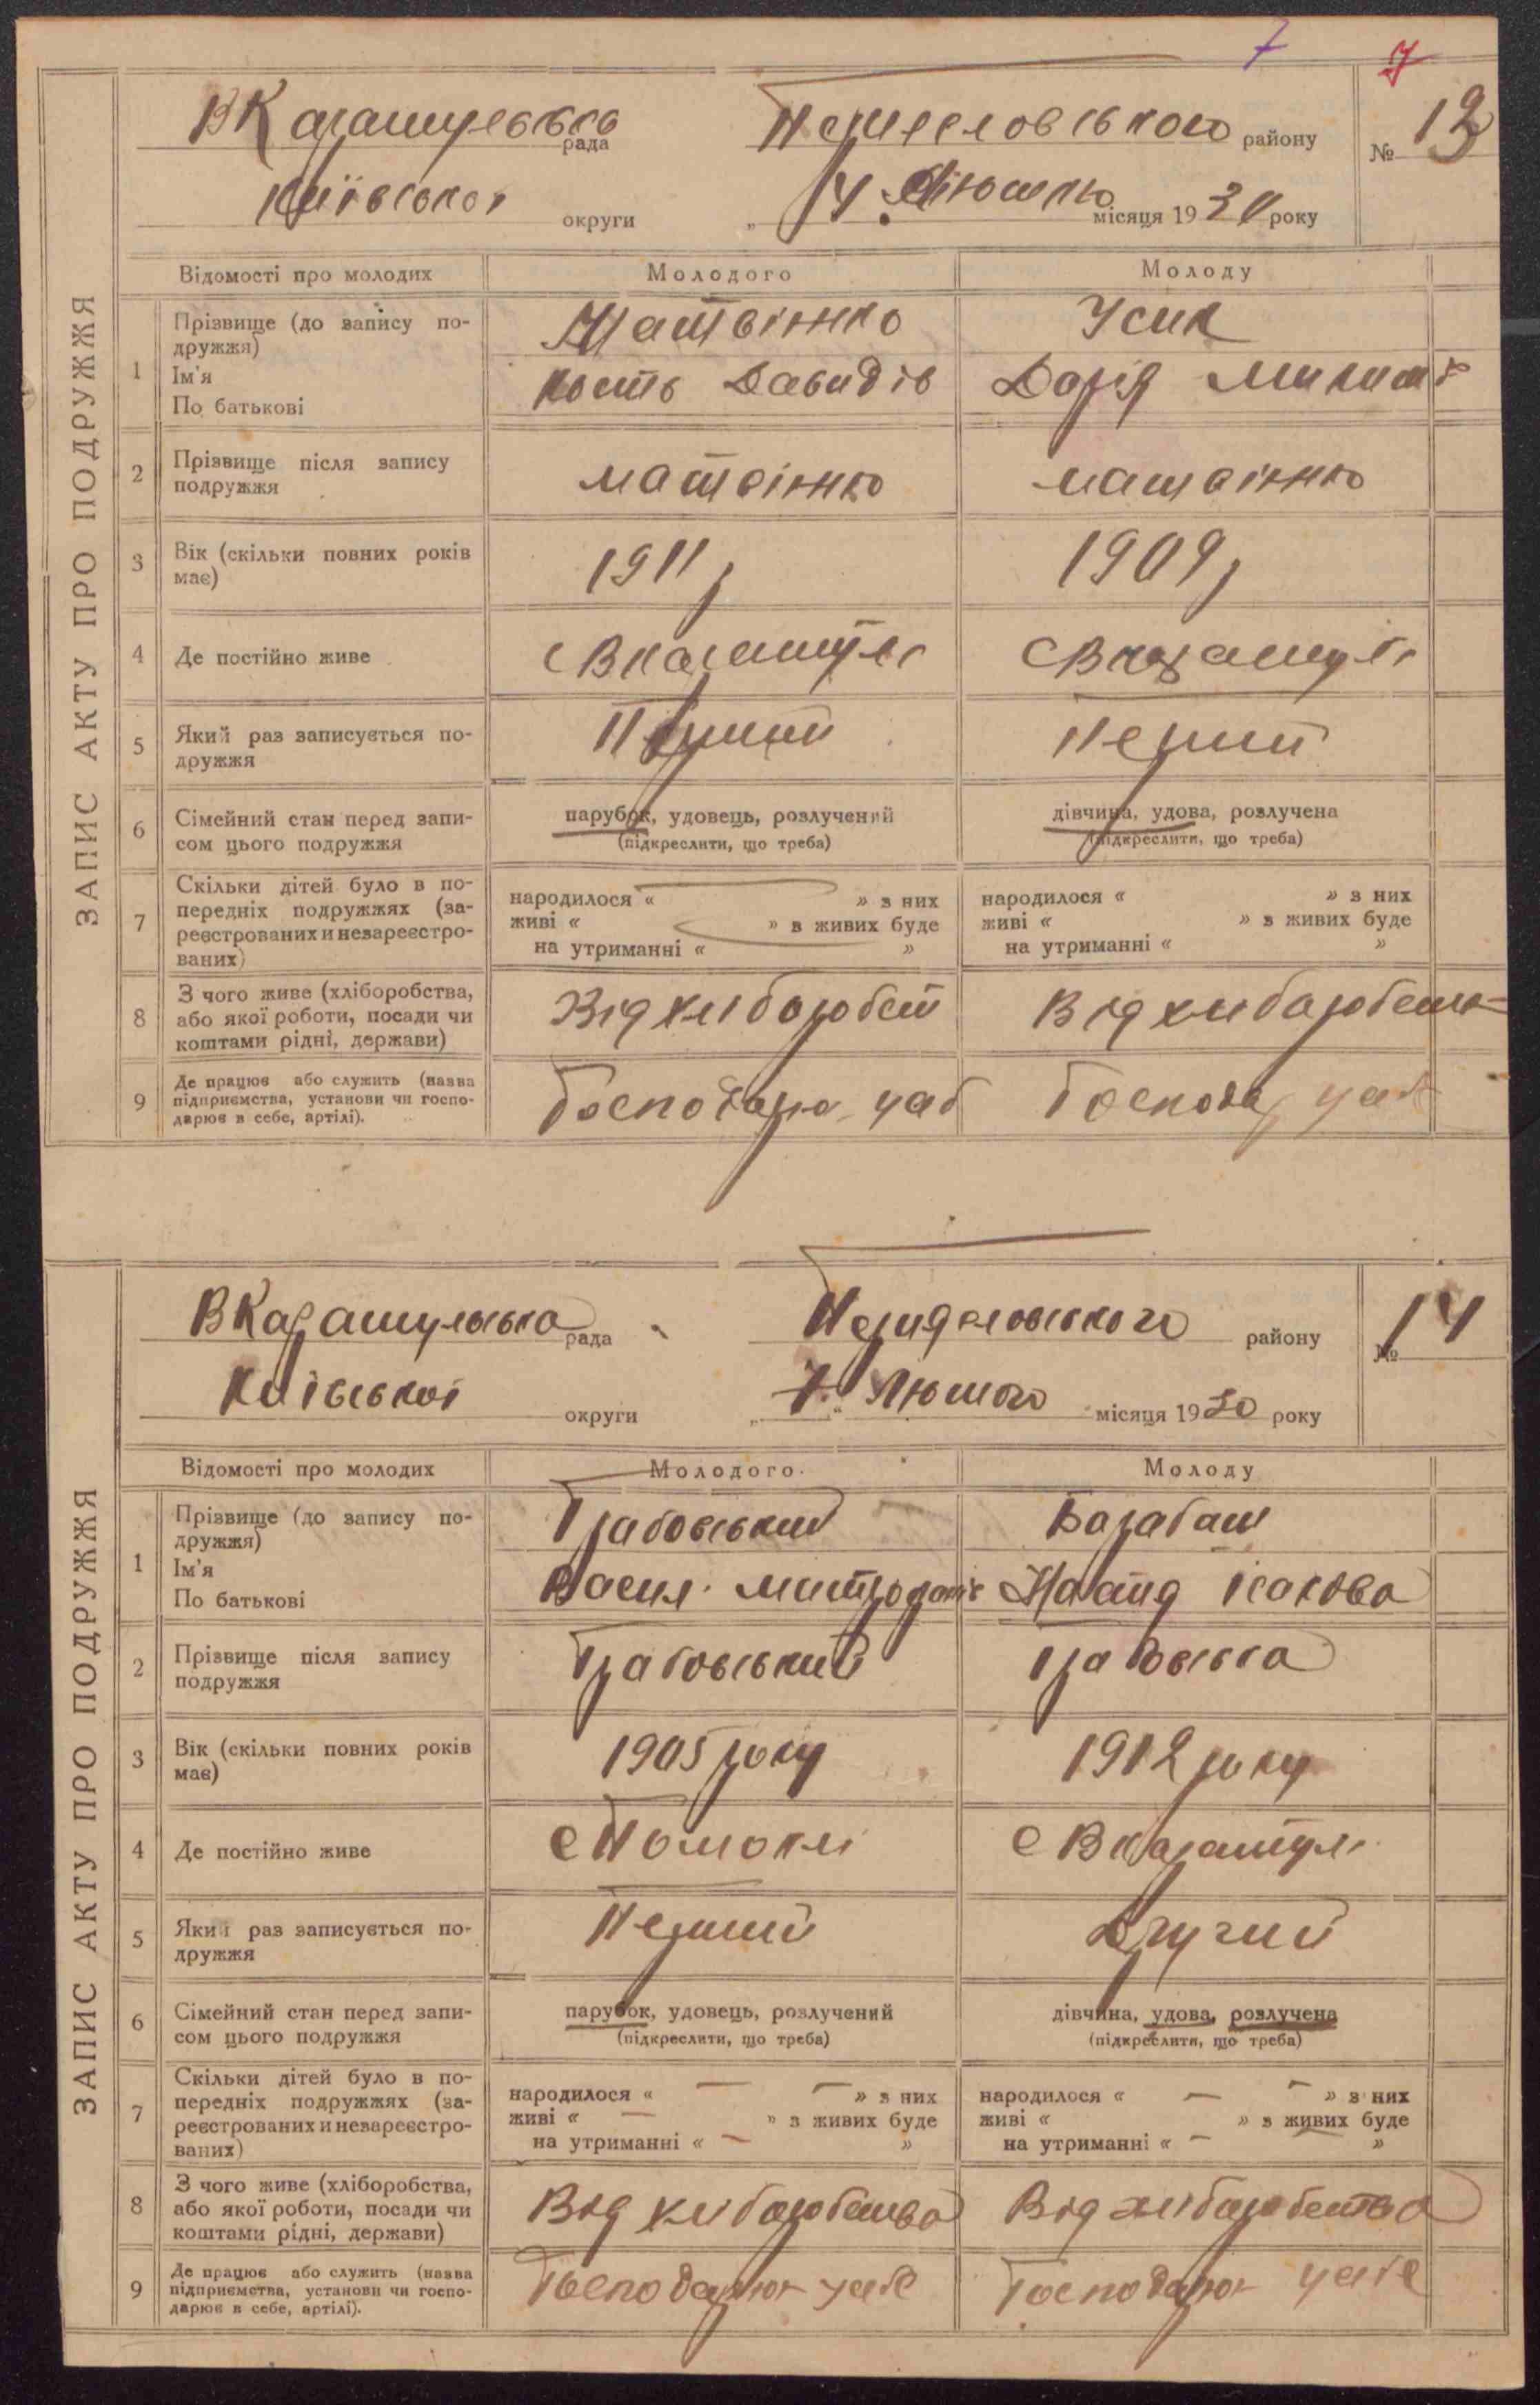 7 7
ЗАПИС АКТУ ПРО ПОДРУЖЖЯ
ВКаратульська рада району № 13
Київської округи „ 14 Лютого місяця 1930 року
Відомості про молодих Молодого Молоду
1 Прізвище (до запису по-
дружжя) Матвієнко Усик
Ім'я
По батькові Кость Давидів Дарія Микит
2 Прізвище після запису
подружжя матвієнко матвієнко
3 Вік (скільки повних років
має) 1911 р 1909 р
4 Де постійно живе с Вкаратулі с Вкаратулі
5 Який раз записується по-
дружжя Перший Перший
6 Сімейний стан перед запи-
сом цього подружжя парубок, удовець, розлучений дівчина, удова, розлучена
(підкреслити, що треба) (підкреслити, що треба)
7 Скільки дітей було в по-
передніх подружжях (за-
реєстрованих и незареєстро-
ваних)
народилося « » з них народилося « » з них
живі « » в живих буде живі « » в живих буде
на утриманні « » на утриманні « »
8 З чого живе (хліборобства,
або якої роботи, посади чи
коштами рідні, держави) Від хліборобст Від хліборобства
9 Де працює або служить (назва
підприємства, установи чи госпо-
дарює в себе, артілі). Господарю уасб Господар уасб
ЗАПИС АКТУ ПРО ПОДРУЖЖЯ
ВКаратульська рада району № 14
Київської округи „ 7 “ Лютого місяця 1930 року
Відомості про молодих Молодого Молоду
1 Прізвище (до запису по-
дружжя) Грабовський Барабаш
Ім'я
По батькові Васил Ісакова
2 Прізвище після запису
подружжя Грабовський Грабовська
3 Вік (скільки повних років
має) 1905 року 1912 року
4 Де постійно живе с Помоклі с Вкаратулі
5 Який раз записується по-
дружжя Перший Другий
6 Сімейний стан перед запи-
сом цього подружжя парубок, удовець, розлучений дівчина, удова, розлучена
(підкреслити, що треба) (підкреслити, що треба)
7 Скільки дітей було в по-
передніх подружжях (за-
реєстрованих и незареєстро-
ваних)
народилося « — — » з них народилося « — — » з них
живі « — » з живих буде живі « » з живих буде
на утриманні « — » на утриманні « — »
8 З чого живе (хліборобства,
або якої роботи, посади чи
коштами рідні, держави) Від хліборобства Від хліборобства
9 Де працює або служить (назва
підприємства, установи чи госпо-
дарює в себе, артілі). Господарює Господарює